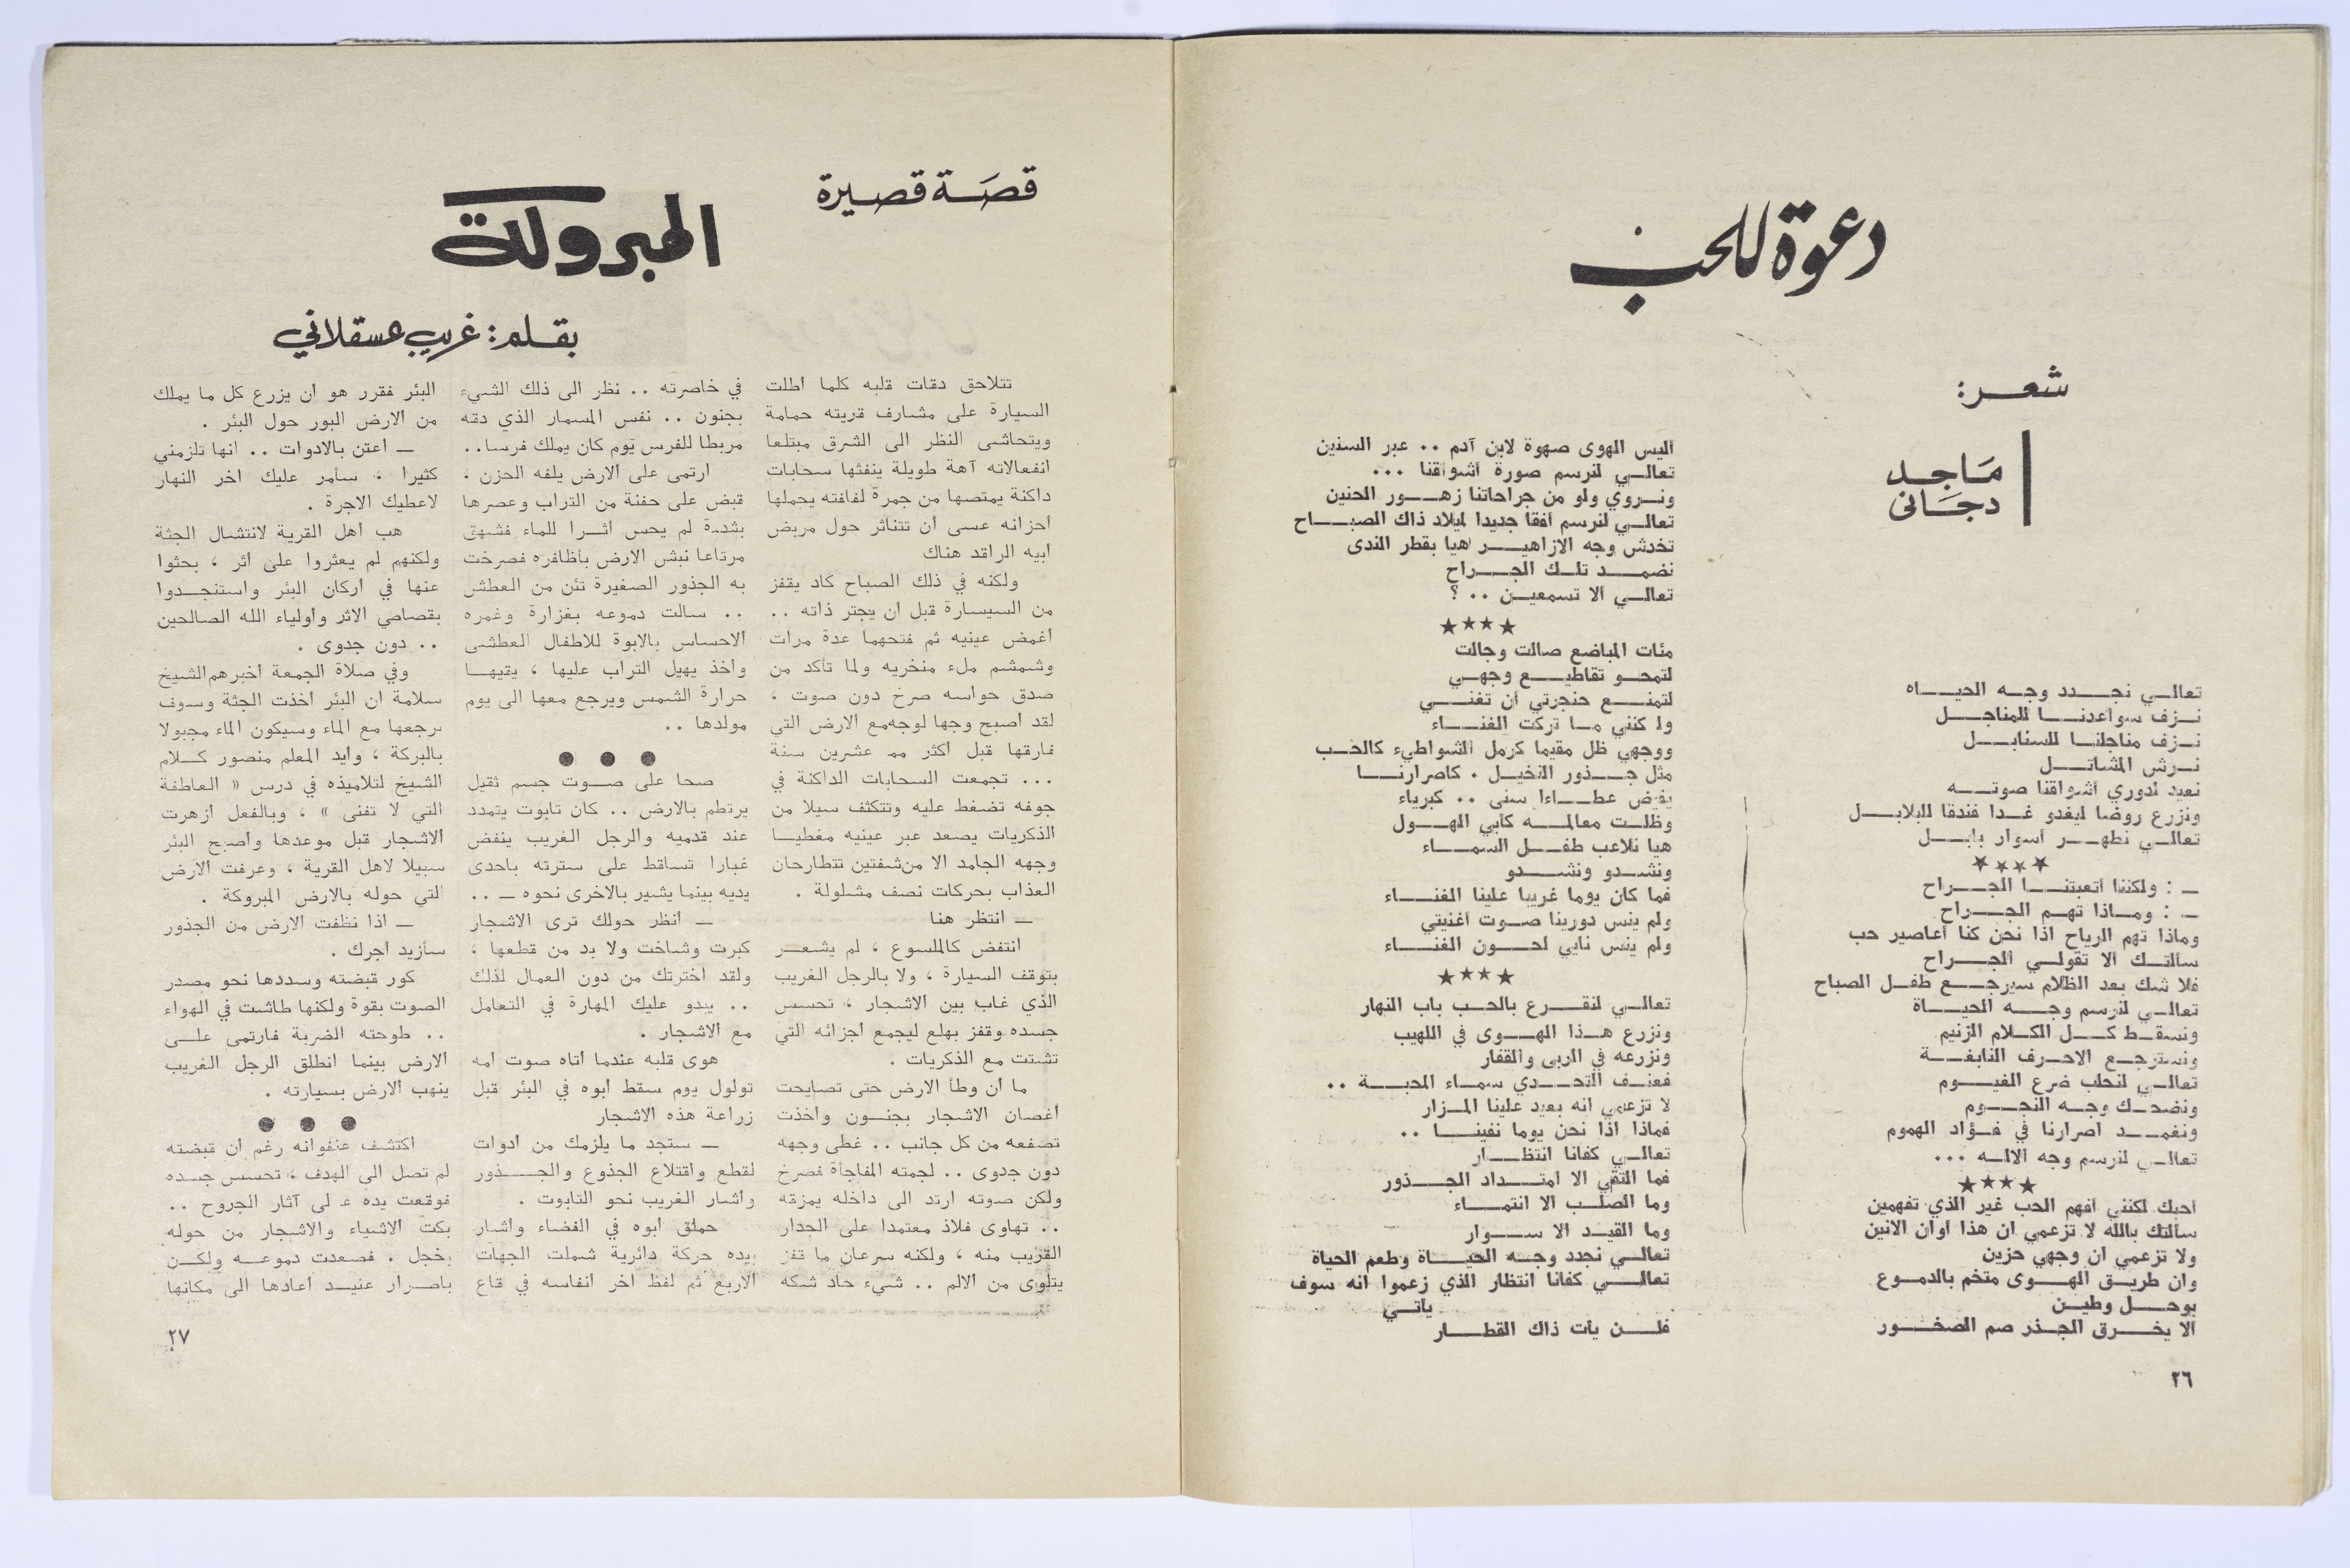 دعوة للحب
شعر:
مَاجد
دجَانى
تعالي نجدد وجه الحياه
نزف سواعدنا للمناجل
نزف مناجلنا للسنابل
نرش المشاتل
نعيد لدوري أشواقنا صوته
ونزرع روضا ليغدو غدا فندقا للبلابل
تعالي نطهر أسوار بابل
★★★★
ــ : ولكننا أتعبتنا الجراح
ــ : وماذا تهم الجراح
وماذا تهم الرياح اذا نحن كنا أعاصير حب
سألتك ألا تقولي الجراح
فلا شك بعد الظلام سيرجع طفل الصباح
تعالي لنرسم وجه الحياة
ونسقط كل الكلام الزنيم
ونسترجع الاحرف النابغة
تعالي لنحلب ضرع الغيوم
ونضحك وجه النجوم
ونغمد اصرارنا في فؤاد الهموم
تعالي لنرسم وجه الاله ...
★★★★
أحبك لكنني أفهم الحب غير الذي تفهمين
سألتك بالله لا تزعمي ان هذا أوان الانين
ولا تزعمي ان وجهي حزين
وان طريق الهوى متخم بالدموع
بوحل وطين
ألا يخرق الجذر صم الصخور
أليس الهوى صهوة لابن آدم .. عبر السنين
تعالي لنرسم صورة أشواقنا ...
ونروي ولو من جراحاتنا زهور الحنين
تعالي لنرسم أفقا جديدا لميلاد ذاك الصباح
تخدش وجه الازاهير هيا بقطر الندى
نضمد تلك الجراح
تعالي ألا تسمعين .. ؟
★★★★
مئات المباضع صالت وجالت
لتمحو تقاطيع وجهي
لتمنع حنجرتي أن تغني
ولكنني ما تركت الغناء
ووجهي ظل مقيما كرمل الشواطىء كالحب
مثل جذور النخيل . كاصرارنا
يفيض عطاءا سنى .. كبرياء
وظلت معالمه كأبي الهول
هيا نلاعب طفل السماء
ونشدو ونشدو
فما كان يوما غريبا علينا الغناء
ولم ينس دورينا صوت أغنيتي
ولم ينس نايي لحون الغناء
★★★★
تعالي لنقرع بالحب باب النهار
ونزرع هذا الهوى في اللهيب
ونزرعه في الربى والقفار
فعنف التحدي سماء المحبة ..
لا تزعمي انه بعيد علينا المزار
فماذا اذا نحن يوما نفينا ..
تعالي كفانا انتظار
فما النفي الا امتداد الجذور
وما الصلب الا انتماء
وما القيد الا سوار
تعالي نجدد وجه الحياة وطعم الحياة
تعالي كفانا انتظار الذي زعموا انه سوف
يأتي
فلن يأت ذاك القطار
٢٦
قصَة قصيرة
المبروكة
بقلم: غريب عسقلاني
تتلاحق دقات قلبه كلما أطلت
السيارة على مشارف قريته حمامة
ويتحاشى النظر الى الشرق مبتلعا
انفعالاته آهة طويلة ينفثها سحابات
داكنة يمتصها من جمرة لفافته يحملها
أحزانه عسى أن تتناثر حول مربض
أبيه الراقد هناك
ولكنه في ذلك الصباح كاد يقفز
من السيسارة قبل أن يجتر ذاته ..
أغمض عينيه ثم فتحهما عدة مرات
وشمشم ملء منخريه ولما تأكد من
صدق حواسه صرخ دون صوت ،
لقد أصبح وجها لوجه مع الارض التي
فارقها قبل أكثر مم عشرين سنة
... تجمعت السحابات الداكنة في
جوفه تضغط عليه وتتكثف سيلا من
الذكريات يصعد عبر عينيه مغطيا
وجهه الجامد الا من شفتين تتطارحان
العذاب بحركات نصف مشلولة .
ــ انتظر هنا
انتفض كالملسوع ، لم يشعر
بتوقف السيارة ، ولا بالرجل الغريب
الذي غاب بين الاشجار ، تحسس
جسده وقفز بهلع ليجمع أجزائه التي
تشتت مع الذكريات .
ما أن وطأ الارض حتى تصايحت
أغصان الاشجار بجنون وأخذت
تصفعه من كل جانب .. غطى وجهه
دون جدوى .. لجمته المفاجأة فصرخ
ولكن صوته ارتد الى داخله يمزقه
.. تهاوى فلاذ معتمدا على الجدار
القريب منه ، ولكنه سرعان ما قفز
يتلوى من الالم .. شيء حاد شكه
في خاصرته .. نظر الى ذلك الشيء
بجنون .. نفس المسمار الذي دقه
مربطا للفرس يوم كان يملك فرسا..
ارتمى على الارض يلفه الحزن ،
قبض على حفنة من التراب وعصرها
بشدة لم يحس أثرا للماء فشهق
مرتاعا نبش الارض بأظافره فصرخت
به الجذور الصغيرة تئن من العطش
.. سالت دموعه بغزارة وغمره
الاحساس بالابوة للاطفال العطشى
وأخذ يهيل التراب عليها ، يقيها
حرارة الشمس ويرجع معها الى يوم
مولدها ..
● ● ●
صحا على صوت جسم ثقيل
يرتطم بالارض .. كان تابوت يتمدد
عند قدميه والرجل الغريب ينفض
غبارا تساقط على سترته باحدى
يديه بينما يشير بالاخرى نحوه ــ ..
ــ أنظر حولك ترى الاشجار
كبرت وشاخت ولا بد من قطعها ،
ولقد اخترتك من دون العمال لذلك
.. يبدو عليك المهارة في التعامل
مع الاشجار .
هوى قلبه عندما أتاه صوت أمه
تولول يوم سقط أبوه في البئر قبل
زراعة هذه الاشجار
ــ ستجد ما يلزمك من أدوات
لقطع واقتلاع الجذوع والجذور
وأشار الغريب نحو التابوت .
حملق أبوه في الفضاء وأشار
بيده حركة دائرية شملت الجهات
الاربع ثم لفظ آخر أنفاسه في قاع
البئر فقرر هو أن يزرع كل ما يملك
من الارض البور حول البئر .
ــ اعتن بالادوات .. انها تلزمني
كثيرا ، سأمر عليك آخر النهار
لاعطيك الاجرة .
هب أهل القرية لانتشال الجثة
ولكنهم لم يعثروا على أثر ، بحثوا
عنها في أركان البئر واستنجدوا
بقصاصي الاثر وأولياء الله الصالحين
.. دون جدوى .
وفي صلاة الجمعة أخبرهم الشيخ
سلامة ان البئر أخذت الجثة وسوف
يرجعها مع الماء وسيكون الماء مجبولا
بالبركة ، وأيد المعلم منصور كلام
الشيخ لتلاميذه في درس « العاطفة
التي لا تفنى » ، وبالفعل أزهرت
الاشجار قبل موعدها وأصبح البئر
سبيلا لاهل القرية ، وعرفت الارض
التي حوله بالارض المبروكة .
ــ اذا نظفت الارض من الجذور
سأزيد أجرك .
كور قبضته وسددها نحو مصدر
الصوت بقوة ولكنها طاشت في الهواء
.. طوحته الضربة فارتمى على
الارض بينما انطلق الرجل الغريب
ينهب الارض بسيارته .
● ● ●
اكتشف عنفوانه رغم أن قبضته
لم تصل الى الهدف ، تحسس جسده
فوقعت يده على آثار الجروح ..
بكت الاشياء والاشجار من حوله
بخجل . فصعدت دموعه ولكن
باصرار عنيد أعادها الى مكانها
٢٧